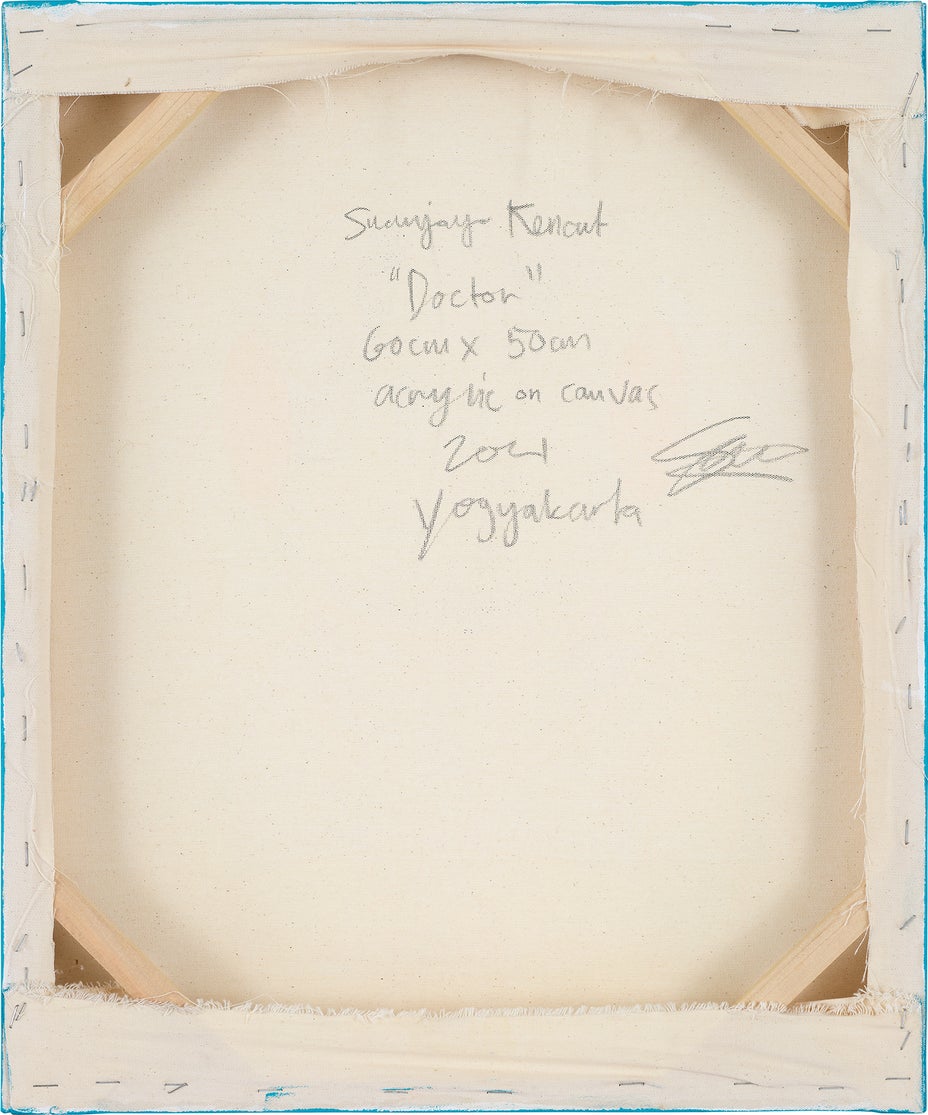 Suanjaya Kencut
"Doctor"
60cm x 50cm
acrylic on canvas
2021
Yogyakarta